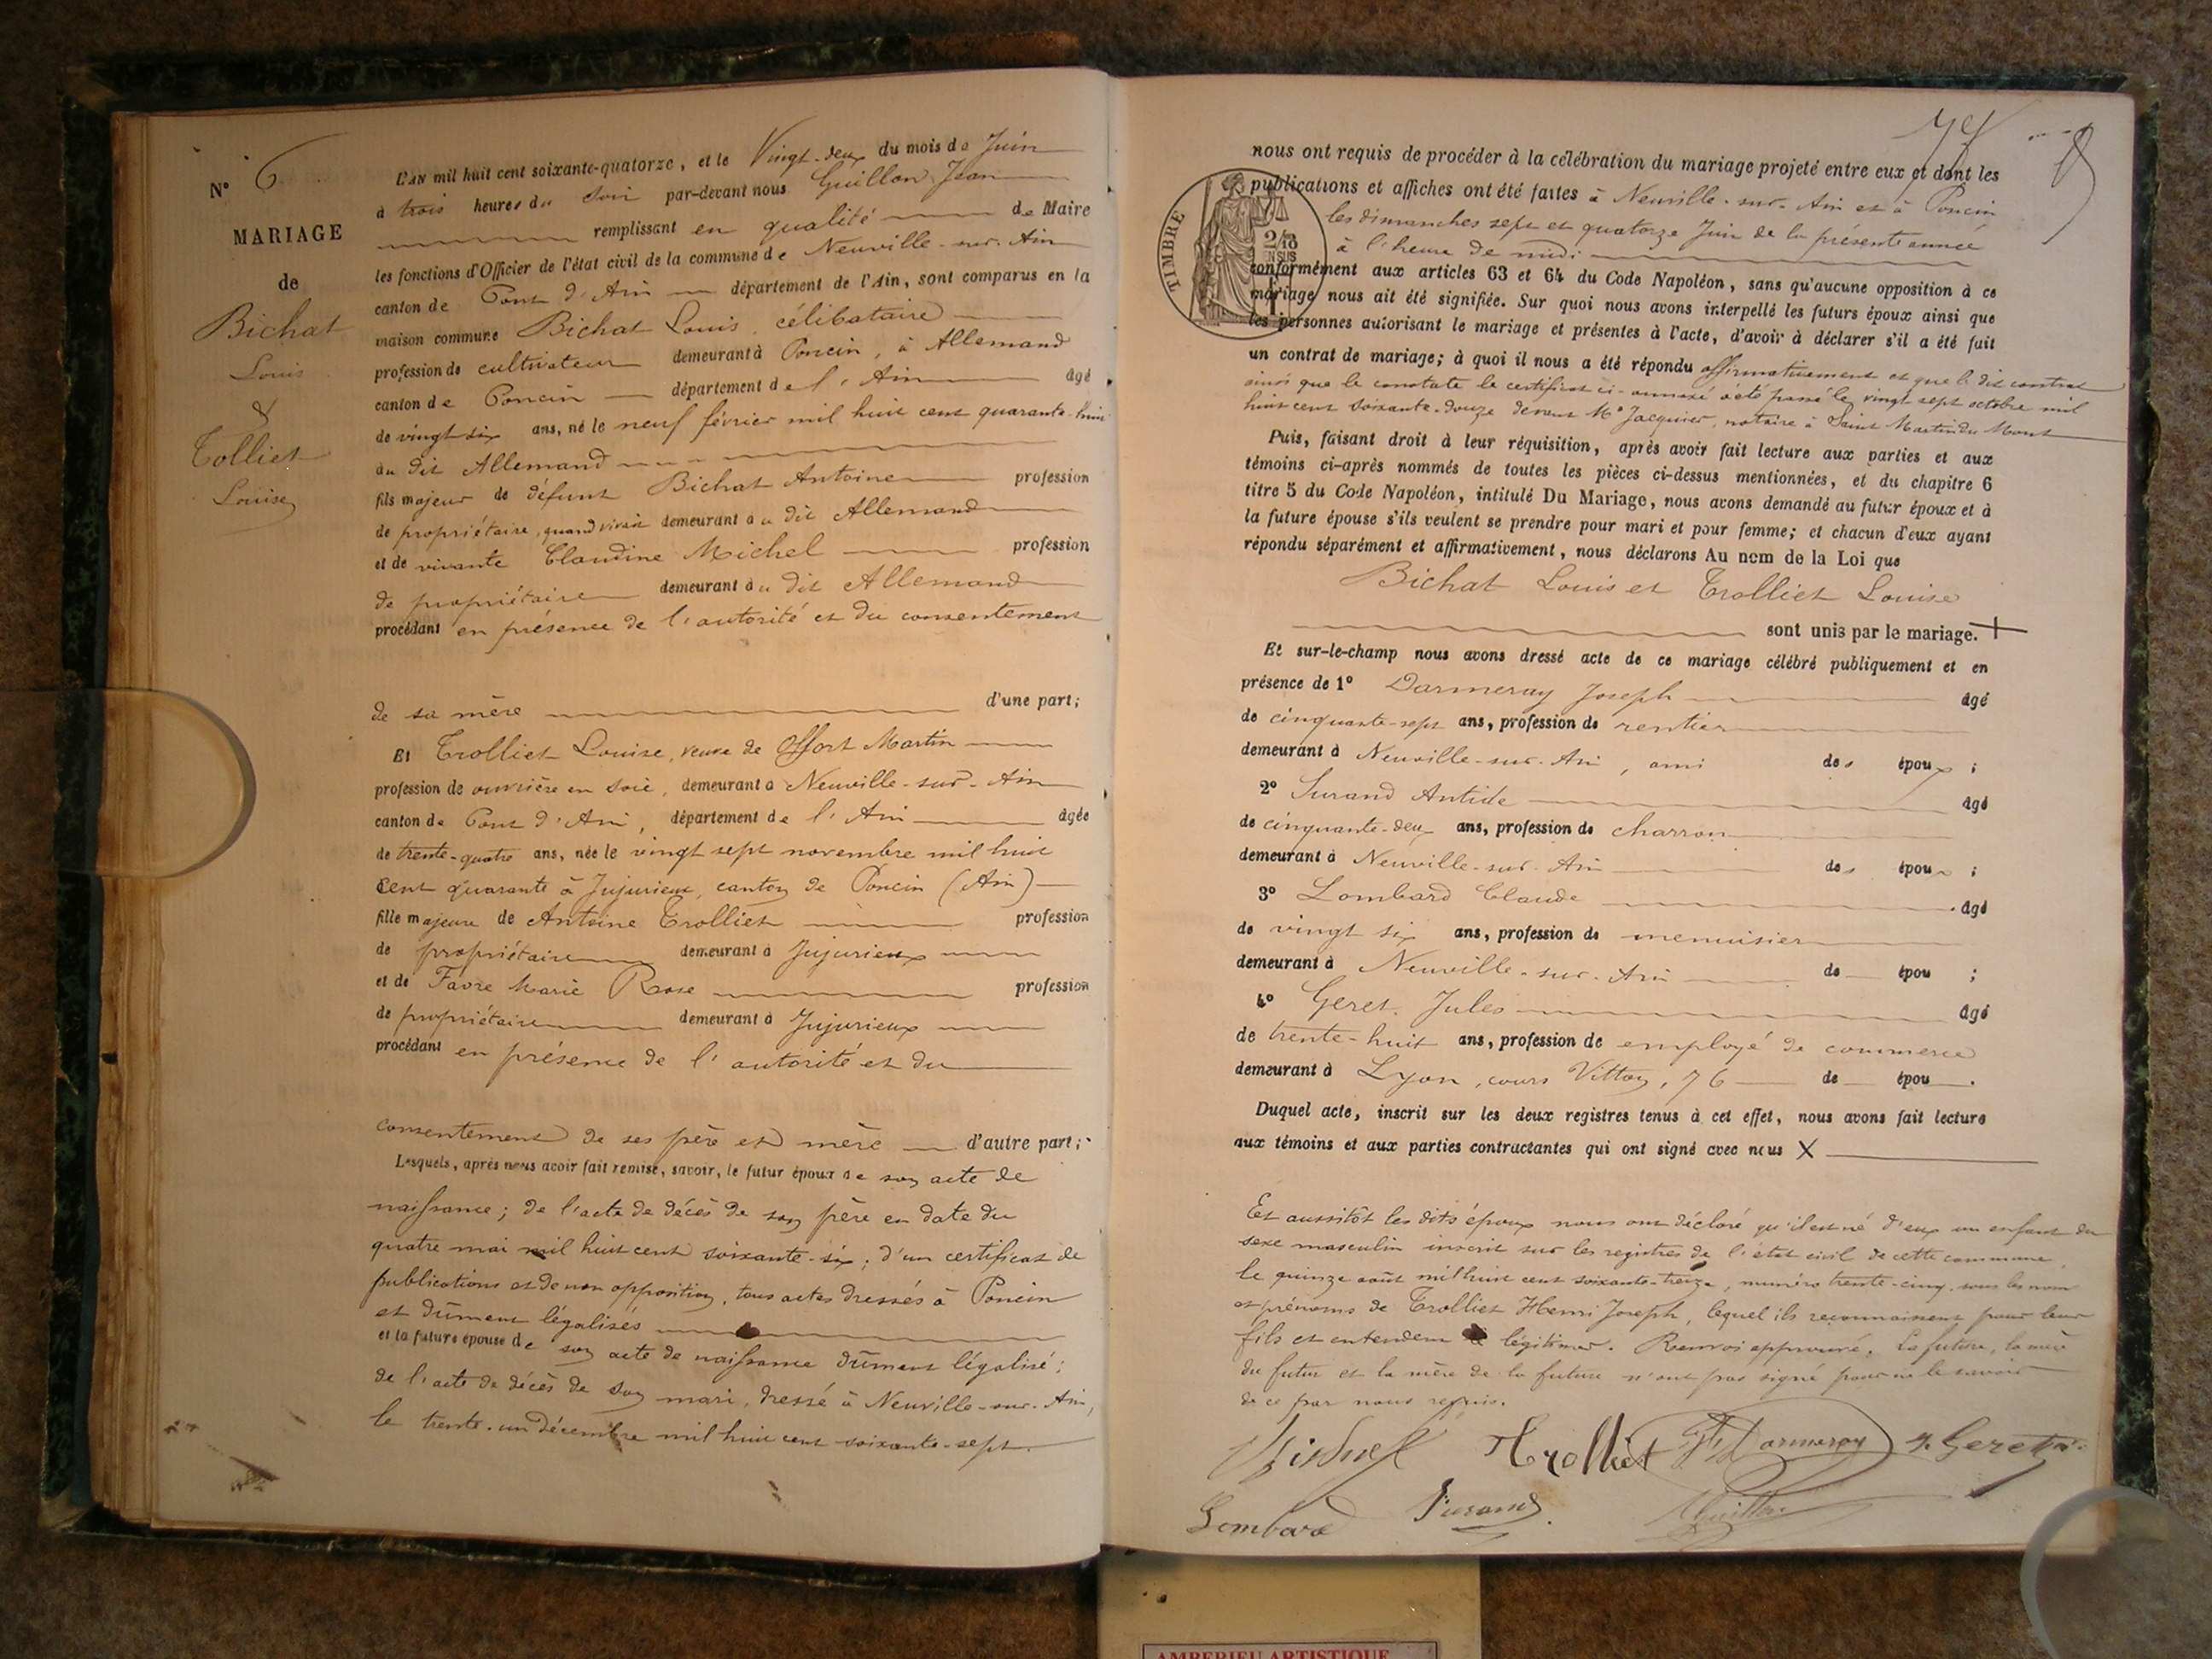 N° 6
MARIAGE
de
Bichat
Louis
&
Tolliet
Louise
L'AN mil huit cent soixante-quatorze, et le Vingt-deux du mois de Juin
à trois heures du soir par-devant nous Guillon Jean
remplissant en qualité de Maire
les fonctions d'Officier de l'état civil de la commune de Neuville-sur-Ain
canton de Pont d'Ain département de l'Ain, sont comparus en la
maison commune Bichat Louis, célibataire
profession de cultivateur demeurant à Poncin, à Allemand
canton de Poncin département de l'Ain âgé
de vingt six ans, né le neuf février mil huit cent quarante-huit
au dit Allemand
fils majeur de défunt Bichat Antoine profession
de propriétaire, quand vivait demeurant au dit Allemand
et de vivante Claudine Michel profession
de propriétaire demeurant au dit Allemand
procédant en présence de l'autorité et du consentement
de sa mère d'une part;
Et Trolliet Louise, veuve de Martin
profession de ouvrière en soie, demeurant à Neuville-sur-Ain
canton de Pont d'Ain, département de l'Ain âgée
de trente-quatre ans, née le vingt sept novembre mil huit
cent quarante à Jujurieux, canton de Poncin (Ain)
fille majeure de Antoine Trolliet profession
de propriétaire demeurant à Jujurieux
et de Favre Marie Rose profession
de propriétaire demeurant à Jujurieux
procédant en présence de l'autorité et du
consentement de ses père et mère d'autre part;
Lesquels, après nous avoir fait remise, savoir, le futur époux de son acte de
naissance; de l'acte de décès de son père en date du
quatre mai mil huit cent soixante-six; d'un certificat de
publications et de non opposition, tous actes dressés à Poncin
et dûment légalisés
et la future épouse de son acte de naissance dûment légalisé;
de l'acte de décès de son mari, dressé à Neuville-sur-Ain,
le trente-un décembre mil huit cent soixante-sept.
nous ont requis de procéder à la célébration du mariage projeté entre eux et dont les
publications et affiches ont été faites à Neuville-sur-Ain et à Poncin
les dimanches sept et quatorze Juin de la présente année
à l'heure de midi
TIMBRE
conformément aux articles 63 et 64 du Code Napoléon, sans qu'aucune opposition à ce
mariage nous ait été signifiée. Sur quoi nous avons interpellé les futurs époux ainsi que
les personnes autorisant le mariage et présentes à l'acte, d'avoir à déclarer s'il a été fait
un contrat de mariage; à quoi il nous a été répondu affirmativement et que le dit contrat
ainsi que le constate le certificat ci-annexé a été passé le vingt sept octobre mil
huit cent soixante-douze devant Me Jacquier, notaire à Saint Martin du Mont
Puis, faisant droit à leur réquisition, après avoir fait lecture aux parties et aux
témoins ci-après nommés de toutes les pièces ci-dessus mentionnées, et du chapitre 6
titre 5 du Code Napoléon, intitulé Du Mariage, nous avons demandé au futur époux et à
la future épouse s'ils veulent se prendre pour mari et pour femme; et chacun d'eux ayant
répondu séparément et affirmativement, nous déclarons Au nom de la Loi que
Bichat Louis et Trolliet Louise
sont unis par le mariage. +
Et sur-le-champ nous avons dressé acte de ce mariage célébré publiquement et en
présence de 1° Darmeray Joseph âgé
de cinquante-sept ans, profession de rentier
demeurant à Neuville-sur-Ain, ami des époux;
2° Surand Antide âgé
de cinquante-deux ans, profession de charron
demeurant à Neuville-sur-Ain des époux;
3° Lombard Claude âgé
de vingt six ans, profession de menuisier
demeurant à Neuville-sur-Ain de épou;
4° Geret Jules âgé
de trente-huit ans, profession de employé de commerce
demeurant à Lyon, cours Vitton, 76 de épou.
Duquel acte, inscrit sur les deux registres tenus à cet effet, nous avons fait lecture
aux témoins et aux parties contractantes qui ont signé avec nous X
Et aussitôt les dits époux nous ont déclaré qu'il est né d'eux un enfant du
sexe masculin inscrit sur les registres de l'état civil de cette commune,
le quinze août mil huit cent soixante-treize, numéro trente-cinq, sous les nom
et prénoms de Trolliet Henri Joseph, lequel ils reconnaissent pour leur
fils et entendent légitimer. Renvoi approuvé. La future, la mère
du futur et la mère de la future n'ont pas signé pour ne le savoir
de ce par nous requis.
Trolliet Darmeray J. Geret
Lombard Surand Guillon
AMBERIEU ARTISTIQUE